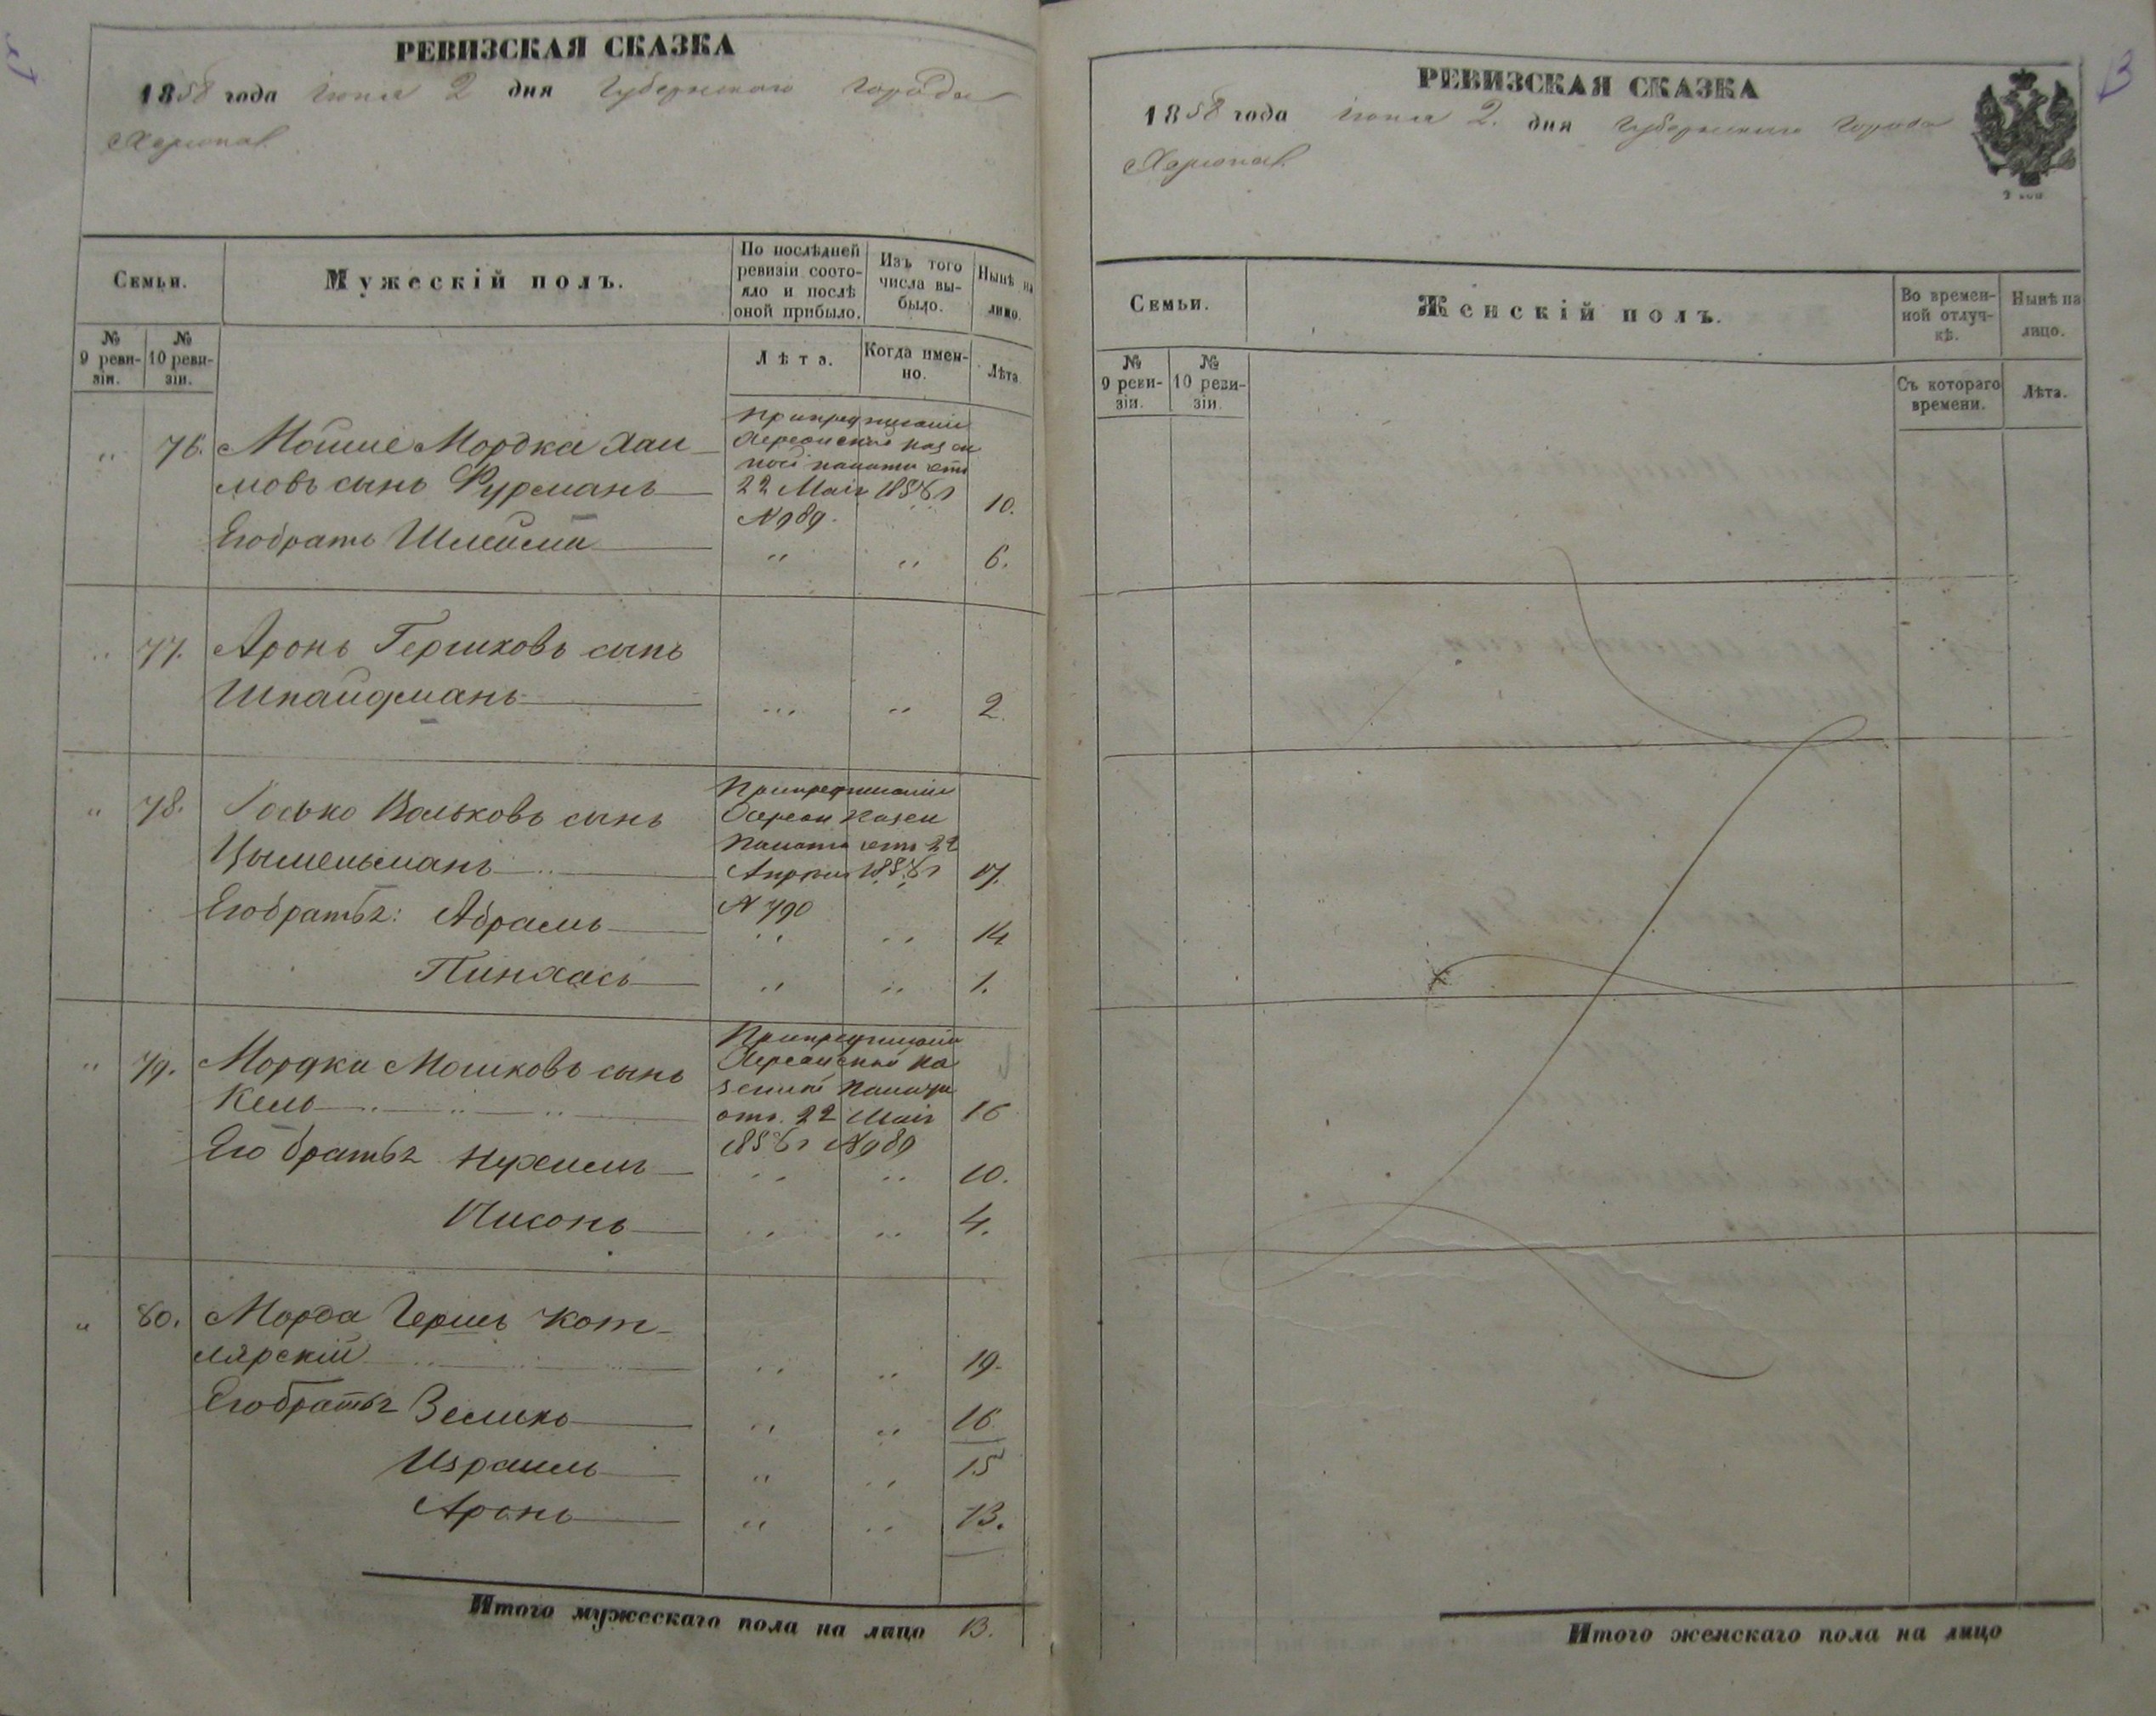 РЕВИЗСКАЯ СКАЗКА
1858 года Іюня 2 дня Губернскаго города
Херсона
Семьи.
Мужескій полъ.
По послѣдней ревизіи состояло и послѣ оной прибыло.
Изъ того числа выбыло.
Нынѣ на лицо.
№ 9 ревизіи.
№ 10 ревизіи.
Лѣта.
Когда именно.
Лѣта
" 76. Мошие Мордка Хаи
мовъ сынъ Фурманъ 10.
По предписанію
Херсонской казен
ной палаты отъ
22 Маія 1858 г
№ 989.
Его братъ " " 6.
.. 77. Аронъ Гершковъ сынъ
Шпайдманъ ... .. 2.
" 78. Іосько Вольковъ сынъ
Цымельманъ 17.
По предписанію
Херсон Казен
Палаты отъ 22
Апреля 1858 г
№ 790
Его братья: Абрамъ " " 14
Пинхасъ " " 1.
" 79. Мордка Мошковъ сынъ
Кель 16
По предписанію
Херсонской Ка
зенной Палаты
отъ 22 Маія
1858 г № 989
Его братья Нухимъ " " 10.
Нисонъ " " 4.
" 80. Морда Гершъ Кот-
лярскій " " 19.
Его братья Зелико " " 16
Израиль " " 15
Аронъ " " 13.
Итого мужескаго пола на лицо 13.
РЕВИЗСКАЯ СКАЗКА
1858 года Іюня 2. дня Губернскаго города
Херсона
Семьи.
Женскій полъ.
Во временной отлучкѣ.
Нынѣ на лицо.
№ 9 ревизіи.
№ 10 ревизіи.
Съ котораго времени.
Лѣта.
Итого женскаго пола на лицо